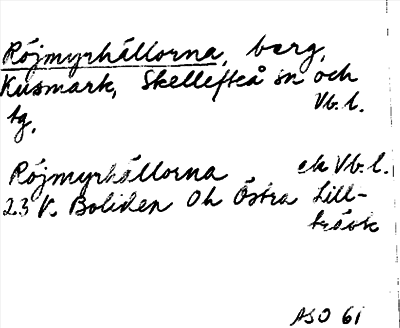 Röjmyrhällorna, berg,
Kusmark, Skellefteå sn och
Vb. l.
tg.
Röjmyrhällorna ek Vb. l.
23 V. Boliden Oh Östra Lill-
träsk
ASO 61